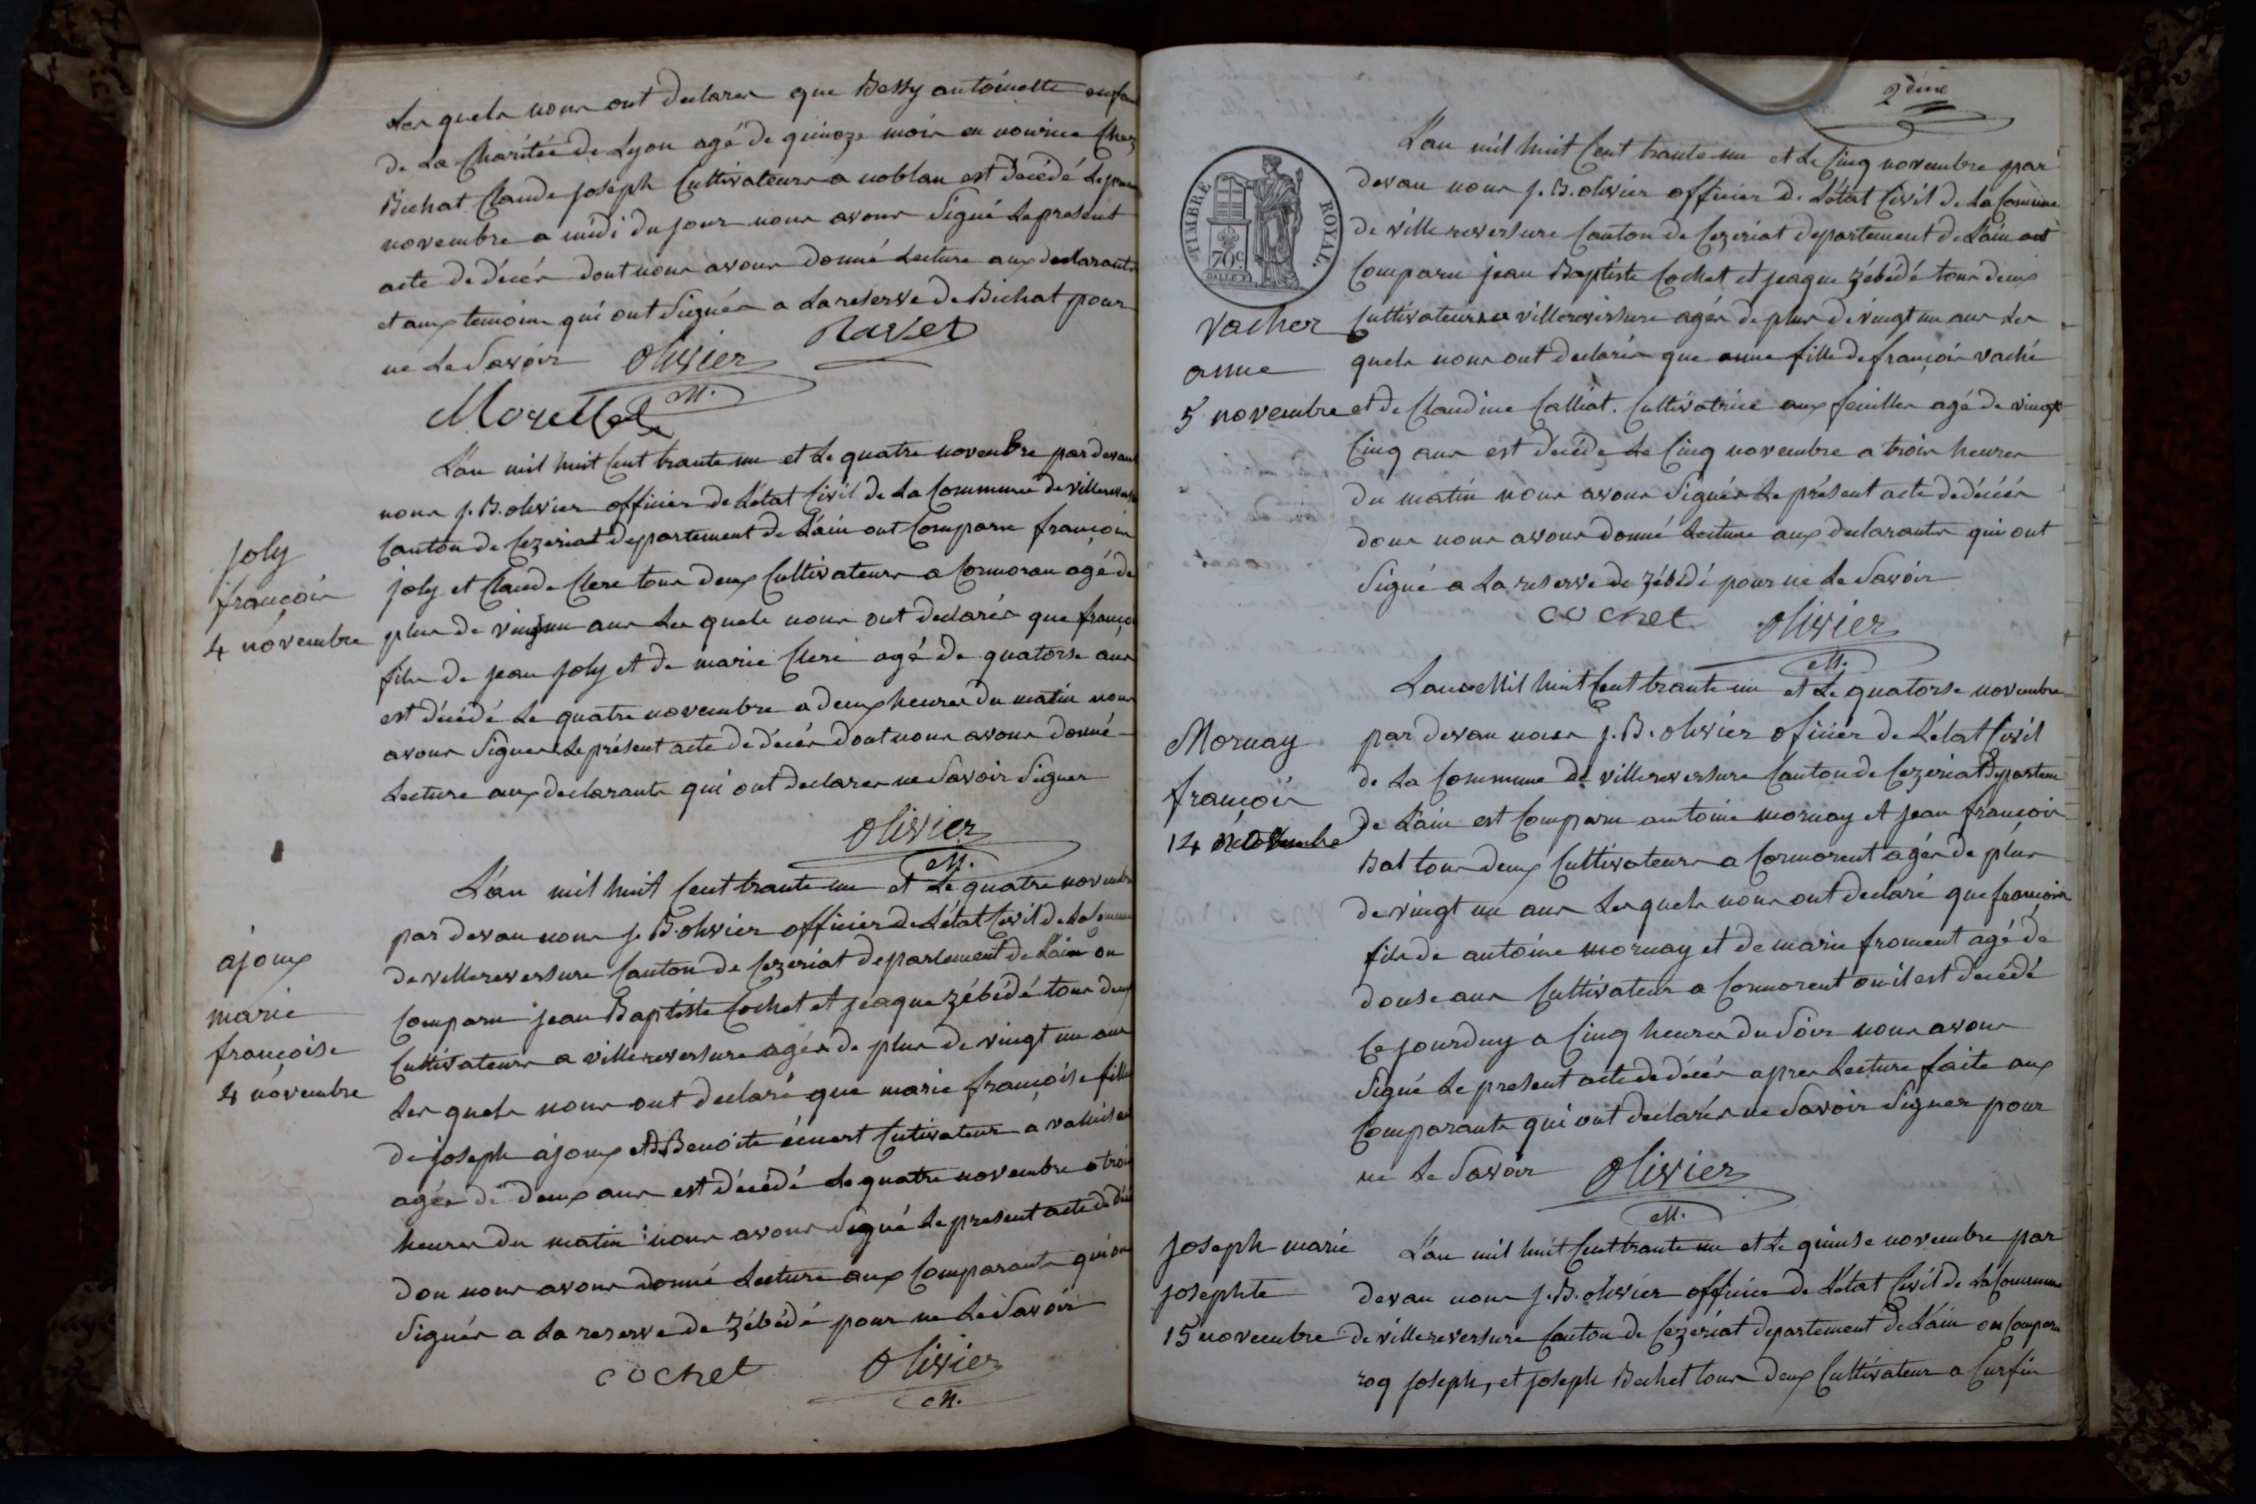 Les quels nous ont declarer que Bessy antoinette enfa
de La Charitée de Lyon agé de quinoze mois en nourice Chez
Bichat Claude joseph Cultivateurs a noblan est Décédé Le
novembre a midi du jour nous avons Signé Le present
acte de décés dont nous avons Donné Lecture aux declarants
et aux temoins qui ont Signér a La reserve de Bichat pour
ne Le Savoir Olivier Ravet
Morellet M.
L'an mil huit Cent trante un et Le quatre novembre par devant
nous J. B. olivier officier de L'état Civil de La Commune de villereversure
Canton de Cezeriat departement de L'ain ont Comparu françois
joly et Claude Clere tous deux Cultivateurs a Cormoran agé de
plus de vingt un ans Les quels nous ont declarés que franço
fils de jean joly et de marie Clere agé de quatorse ans
est décédé Le quatre novembre a deux heures du matin nous
avons Signer Le présent acte de décés dont nous avons donné
Lecture aux declarants qui ont declarer ne Savoir Signer
Olivier
M.
joly
françois
4 novembre
L'an mil huit Cent trante un et Le quatre novembre
par devan nous J. B. olivier officier de L'état Civil de La Commune
de villereversure Canton de Cezeriat departement de L'ain on
Comparu jean Baptiste Cochet et jeaque zébédé tous deux
Cultivateurs a villereversure agés de plus de vingt un ans
Les quels nous ont declaré que marie françoise fille
de joseph ajoux et de Benoite Cultivateur a
agée de deux ans est décédé Le quatre novembre a trois
heures du matin nous avons Signé Le present acte de déc
don nous avons donné Lecture aux Comparants qui on
Signér a La reserve de zébédé pour ne Le Savoir
cochet Olivier
M.
ajoux
marie
françoise
4 novembre
2ème
TIMBRE ROYAL.
70c
L'an mil huit Cent trante un et Le Cinq novembre par
devan nous J. B. olivier officier de L'état Civil de La Commune
de villereversure Canton de Cezeriat departement de L'ain ont
Comparu jean Baptiste Cochet et jeaque zébédé tous deux
Cultivateurs a villereversure agés de plus de vingt un ans Les
quels nous ont declarés que anne fille de françois vaché
et de Claudine Calliat. Cultivatrice aux feuilles agé de vingt
Cinq ans est décédé Le Cinq novembre a trois heures
du matin nous avons Signér Le présent acte de décés
dont nous avons donné Lecture aux declarants qui ont
Signé a La reserve de zébédé pour ne Le Savoir
cochet Olivier
M.
vacher
anne
5 novembre
L'an Mil huit Cent trante un et Le quatorse novembre
par devan nous J. B. olivier oficier de L'état Civil
de La Commune de villereversure Canton de Cezeriat departem
de L'ain est Comparu antoine mornay et jean françois
Bal tous deux Cultivateurs a Cormorent agés de plus
de vingt un ans Les quels nous ont declaré que françois
fils de antoine mornay et de marie froment agé de
douse ans Cultivateur a Cormorent ou il est décédé
Ce jourduy a Cinq heures du Soir nous avons
Signé Le present acte de décés apres Lecture faite aux
Comparants qui ont declarés ne Savoir Signer pour
ne Le Savoir Olivier
M.
Mornay
françois
14 novembre
L'an mil huit Cent trante un et Le quinse novembre par
devan nous J. B. olivier officier de L'état Civil de La Commune
de villereversure Canton de Cezériat departement de L'ain on Comparu
roq joseph, et joseph Bechet tous deux Cultivateur a Curfin
joseph marie
josephte
15 novembre